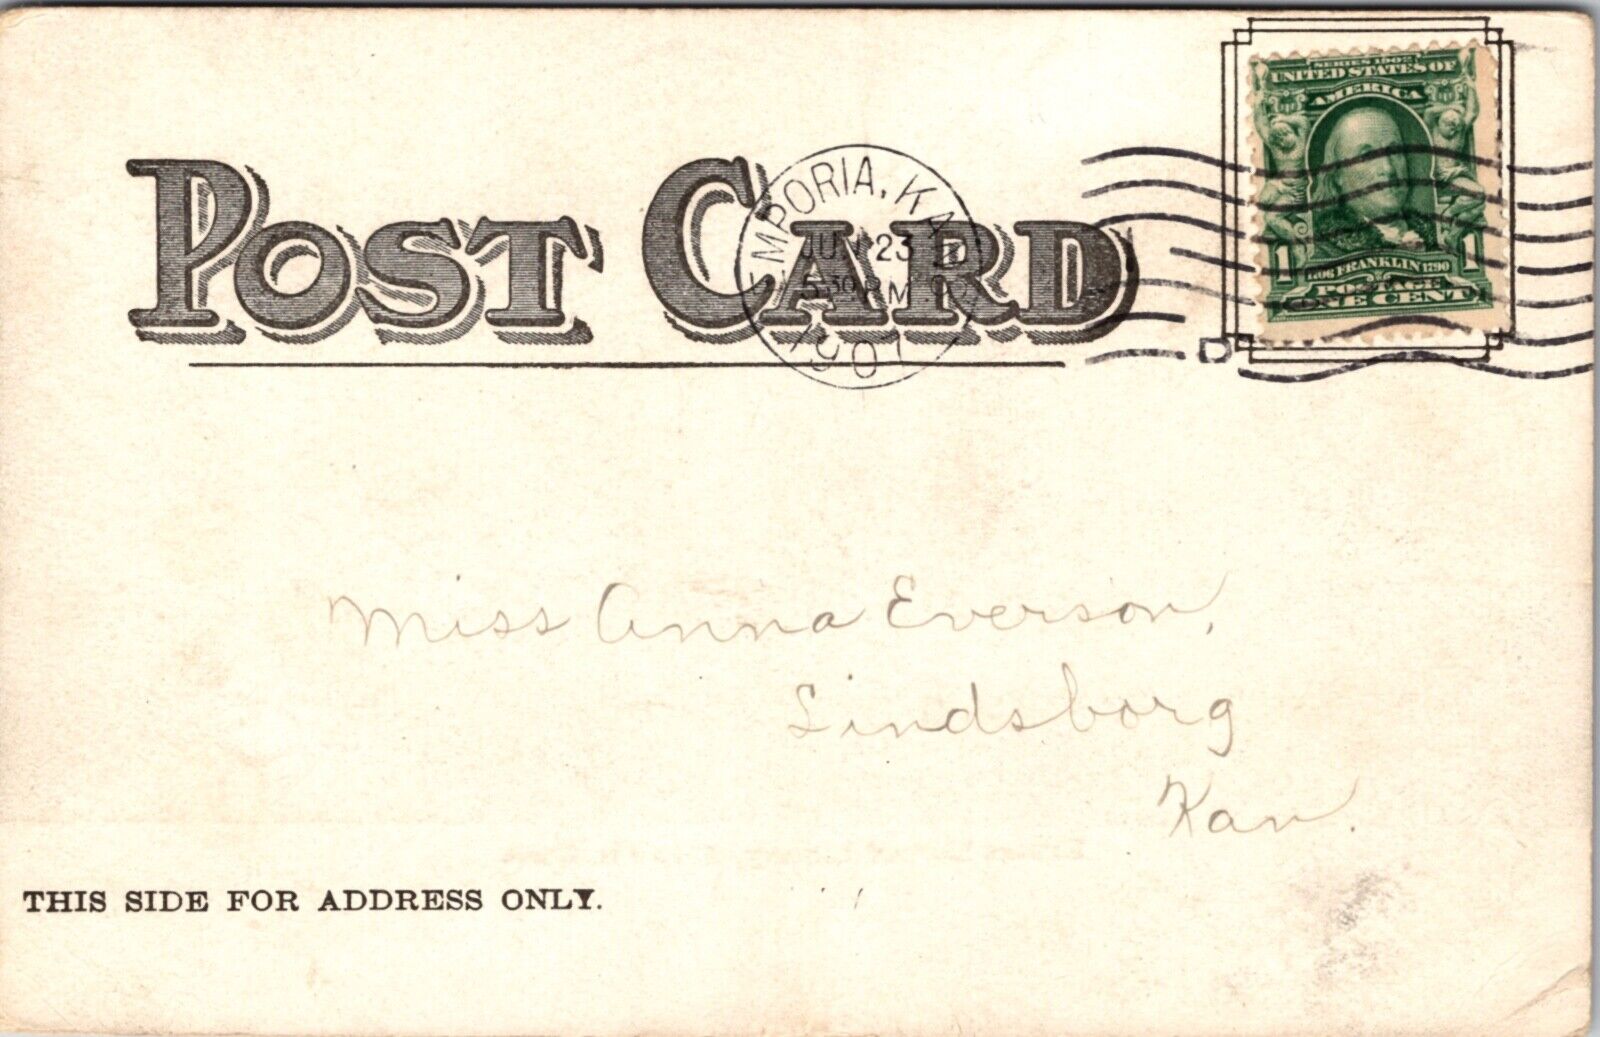 SERIES 1902
UNITED STATES OF
AMERICA
1 1706 FRANKLIN 1790 1
POSTAGE
ONE CENT
EMPORIA, KAN.
JUN 23
5:30 PM
1907
D
POST CARD
Miss Anna Everson,
Lindsborg
Kan.
THIS SIDE FOR ADDRESS ONLY.